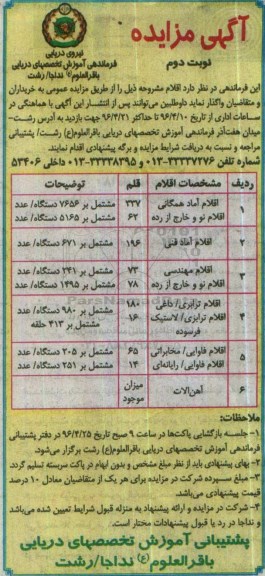 آگهی مزایده
نوبت دوم
نیروی دریایی
فرماندهی آموزش تخصصهای دریایی
باقرالعلوم(ع) نداجا/ رشت
این فرماندهی در نظر دارد اقلام مشروحه ذیل را از طریق مزایده عمومی به خریداران
و متقاضیان واگذار نماید داوطلبین می‌توانند پس از انتشار این آگهی با هماهنگی در
ساعات اداری از تاریخ ۹۶/۴/۱۰ تا حداکثر ۹۶/۴/۲۱ جهت بازدید به آدرس رشت-
میدان هفت‌آذر فرماندهی آموزش تخصصهای دریایی باقرالعلوم(ع) رشت/ پشتیبانی
مراجعه و نسبت به دریافت شرایط مزایده و برگه پیشنهادی اقدام نمایند.
شماره تلفن ۳۳۳۳۷۲۷۶-۰۱۳ و ۳۳۳۳۸۳۹۵-۰۱۳ داخلی ۵۳۴۰۶
ردیف مشخصات اقلام قلم توضیحات
۱ اقلام آماد همگانی ۳۳۷ مشتمل بر ۷۶۵۶ دستگاه/ عدد
اقلام نو و خارج از رده ۶۲ مشتمل بر ۵۱۶۵ دستگاه/ عدد
۲ اقلام آماد فنی ۱۹۶ مشتمل بر ۶۷۱ دستگاه/ عدد
۳ اقلام مهندسی ۷۳ مشتمل بر ۲۴۱ دستگاه/ عدد
اقلام نو و خارج از رده ۷۸ مشتمل بر ۱۴۹۵ دستگاه/ عدد
۴ اقلام ترابری/ داغی ۱۸۰ مشتمل بر ۹۸۰ دستگاه/ عدد
اقلام ترابری/ لاستیک فرسوده ۱۶ مشتمل بر ۴۱۳ حلقه
۵ اقلام فاوایی/ مخابراتی ۶۵ مشتمل بر ۲۰۵ دستگاه/ عدد
اقلام فاوایی/ رایانه‌ای ۱۴ مشتمل بر ۲۵۱ دستگاه/ عدد
۶ آهن‌آلات میزان موجود
ملاحظات:
۱- جلسه بازگشایی پاکت‌ها در ساعت ۹ صبح تاریخ ۹۶/۴/۲۵ در دفتر پشتیبانی
فرماندهی آموزش تخصصهای دریایی باقرالعلوم(ع) رشت برگزار می‌شود.
۲- بهای پیشنهادی باید از نظر مبلغ مشخص و بدون ابهام در پاکت سربسته تسلیم گردد.
۳- مبلغ سپرده شرکت در مزایده برای هر یک از متقاضیان معادل ۱۰ درصد
قیمت پیشنهادی می‌باشد.
۴- شرکت در مزایده و ارائه پیشنهاد به منزله قبول شرایط تعیین شده می‌باشد
و نداجا در رد یا قبول پیشنهادات مختار است.
پشتیبانی آموزش تخصصهای دریایی
باقرالعلوم(ع) نداجا/رشت